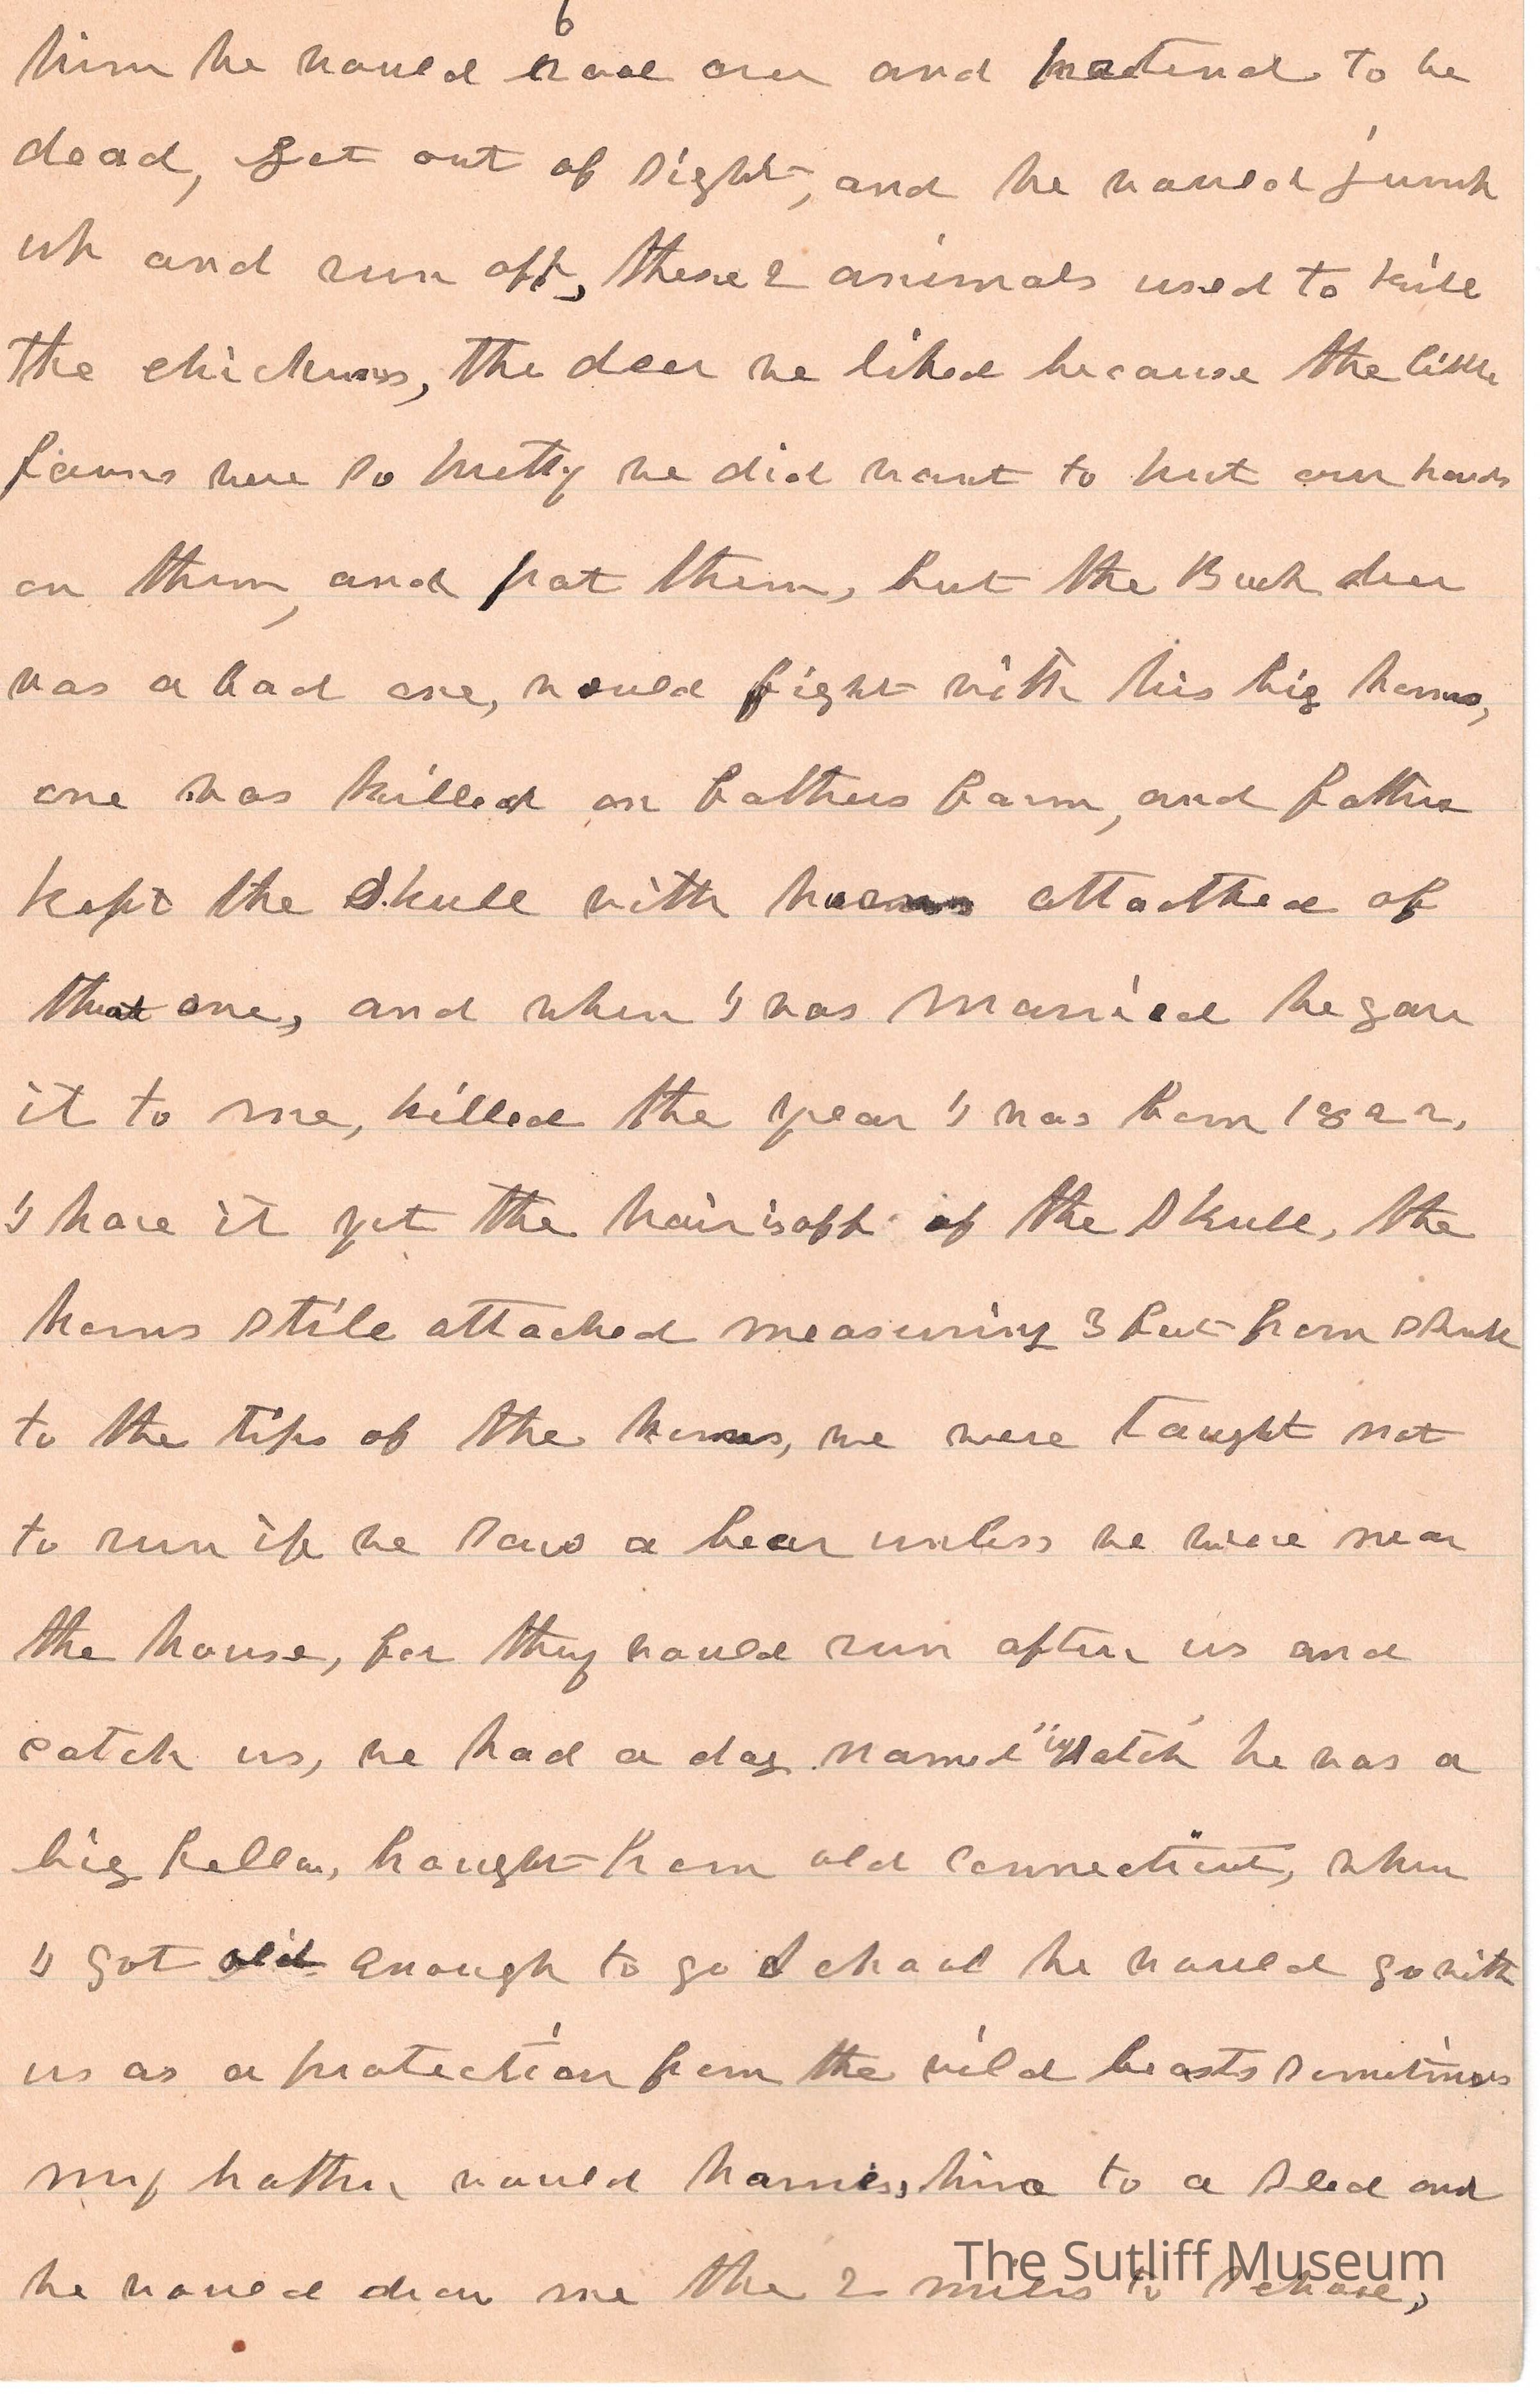 6
him he would rool over and pretend to be
dead, get out of sight, and he would jump
up and run off, these 2 animals used to kill
the chickens, the deer we liked because the little
fawns were so pretty we did want to put our hands
on them, and pat them, but the Buck deer
was a bad one, would fight with his big horns,
one was killed on fathers farm, and father
kept the Skull with horns attatched of
that one, and when I was married he gave
it to me, killed the year I was born 1822,
I have it yet the hair is off of the Skull, the
horns still attached measuring 3 feet from skull
to the tips of the horns, we were taught not
to run if we saw a bear unless we were near
the house, for they would run after us and
catch us, we had a dog named "Watch" he was a
big fellow, bought from old Connecticut, when
I got old enough to go School he would go with
us as a protection from the wild beasts sometimes
my father would harness him to a sled and
he would draw me the 2 miles to School,
The Sutliff Museum